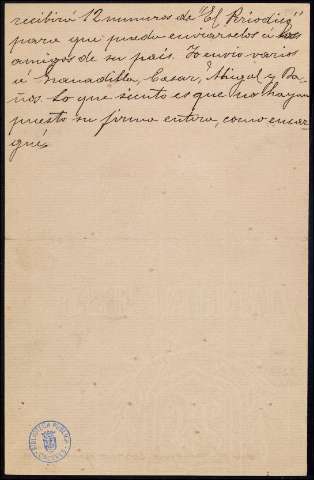 recibirá 12 numeros de "El Periodico"
para que pueda enviarselos á los
amigos de su país. Yo envio varios
á Granadilla, Cesar, Miguel y Ba-
ños. Lo que siento es que no hayan
puesto su firma entera, como encar-
gué.
BIBLIOTECA PUBLICA
CACERES